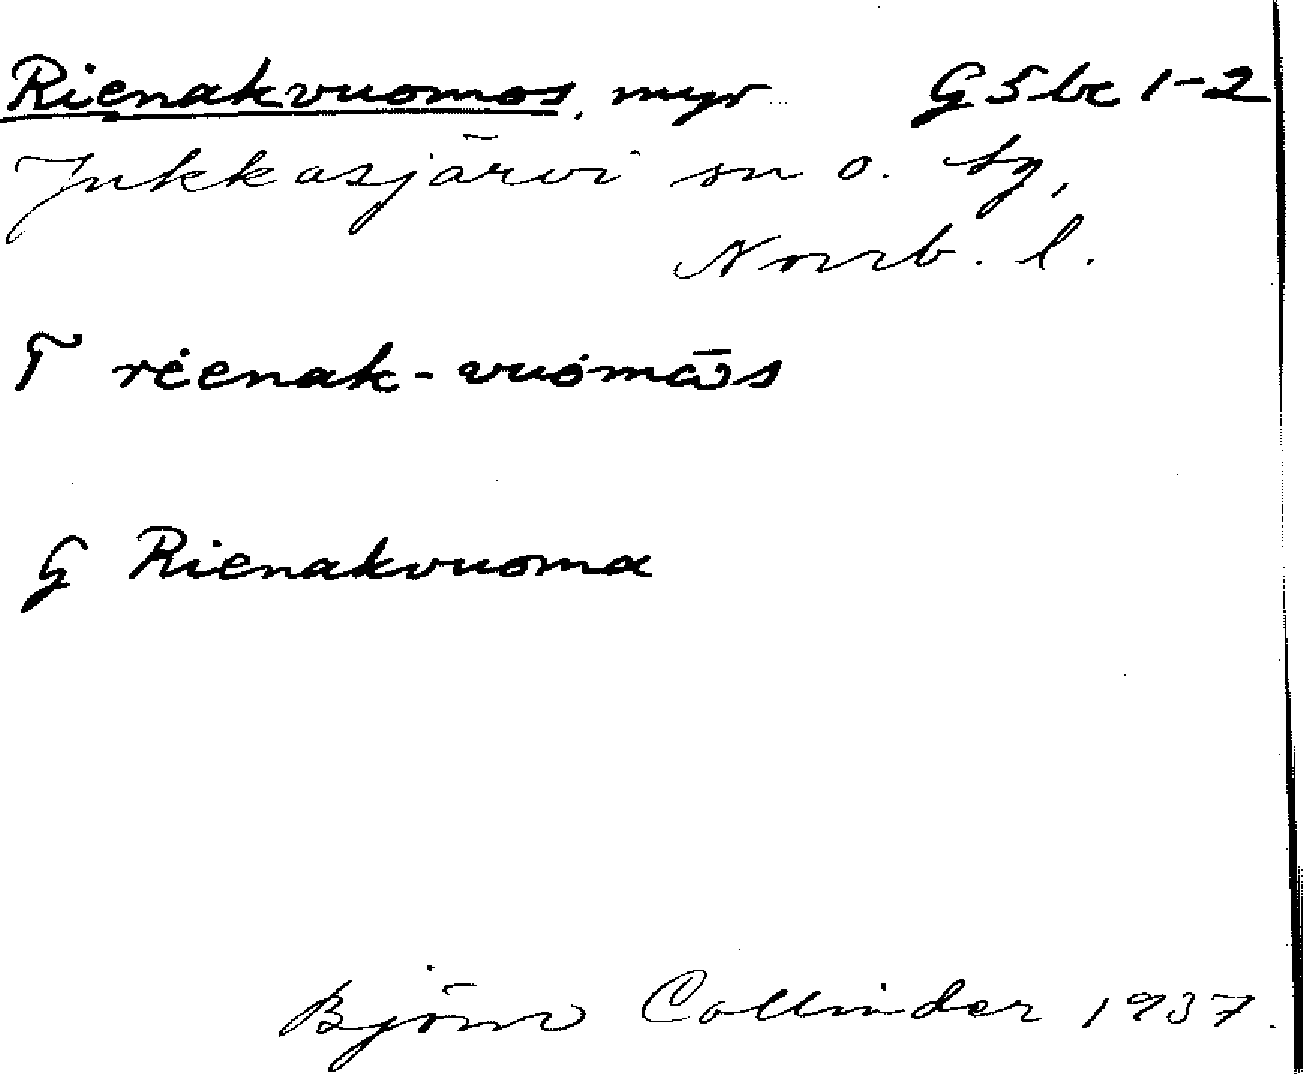 Rienakvuomos, myr G5bc 1-2
Jukkasjärvi sn o. tg,
Norrb. l.
T rienak-vuomās
G Rienakvuoma
Björn Collinder 1937.